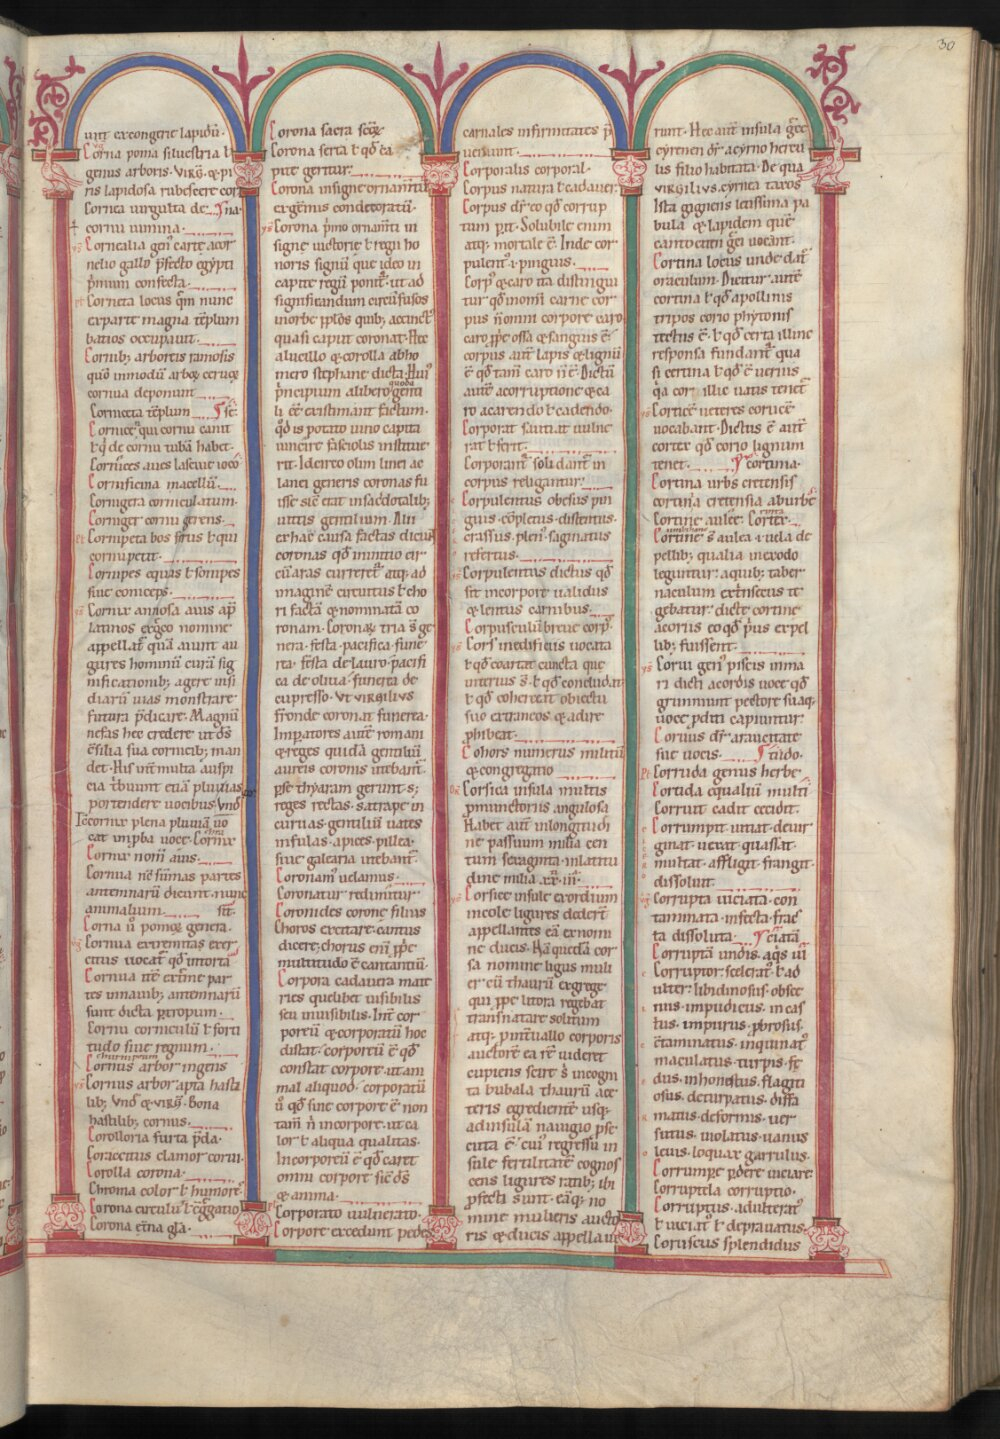 30
uint ex congerie lapidũ.
Corna poma siluestria ł
genus arboris. virg̃. & pi
ris lapidosa rubescere cor
Cornea uirgulta de. na.
cornu uimina.
Cornicalia gen᷒ carte a cor
nelio gallo p̃fecto egẏpti
p̃mum confecta.
Corneta locus q̃m nunc
ex parte magna tẽplum
batios occupauit.
Cornib; arboreis ramosis
quõ inmodũ arboꝝ ceruoꝝ
cornua deponunt
Cornicta tẽplum
Cornicẽ qui cornu canit
ł q̃ de cornu tubã habet.
Cornices aues lasciue uoc̃
Cornificina macellũ.
Cornigera corniculatum.
Corniger cornu gerens.
Cornipeta bos ferus ł qui
cornu petit.
Cornipes equus ł sonipes
siue coniceps.
Cornix annosa auis ap̃
Latinos ex greco nomine
appellat̃ quã aiunt au
gures hominũ curã sig
nificationib; agere insi
diarũ uias monstrare
futura p̃dicare. Magnũ
nefas hec credere ut d̃s
c̃silia sua cornicib; man
det. His int̃ multa auspi
cia t̃buunt etiã pluuias
portendere uocibus. vnđ
Tc̃ cornix plena pluuiã uo
cat inp̃ba uoce. Cornix
Cornix nom̃ auis.
Cornua nẽ sũmas partes
antemnarũ dicunt. nunc
animalium. sit.
Corna u᷒ pomoꝝ genera.
Cornua extremitas exer
citus uocat̃ qđ intorta
Cornua itẽ extr̃me par
tes innauib; antemnarũ
sunt dicta ꝑ tropum.
Cornu corniculũ ł forti
tudo siue regnum.
Cornus arbor ingens
Cornus arbor apta hasti
lib; vnđ & virg̃. Bona
hastilib; cornus.
Corolloria furta p̃da.
Coraccitus clamor corui.
Corolla corona.
Chroma color ł humorẽ.
Corona circulũ ł c̃g̃gatio
Corona et̃na gl̃a.
Corona sacra secꝫ
Corona serta ł qđ ea
pite geritur.
Corona insigne ornam̃tũ
ex geñus condecoratũ.
Corona p̃mo ornam̃ti in
signe uictorie ł regii ho
noris signũ que ideo in
capite regũ ponit̃. ut ad
significandum circũfusos
inorbe pp̃los quib; accinct᷒
quasi caput coronat. Hec
a lucillo & corolla ab ho
mero stephane dicta. Hui᷒
p̃ncipium alibero genti
li cẽ existimant fictum.
qđ is potato uino capita
uincire fasciolis institue
rit. Idcirco olim linei ac
lanei generis coronas fu
isse sic̃ erat insacerdotalib;
uittis gentilium. Alii
ex hac causa factas dicũt
coronas qđ in initio cir
cũ aras currerẽt. atq; ad
imaginẽ circuitus ł cho
ri factã & nominatã co
ronam. Coronaꝝ tria s̃ ge
nera. festa. pacifica. fune
rea. festa de lauro. p̃acifi
ca de oliua. funerea de
cupresso. vt virgilius
fronde coronat funerea.
Imp̃atores autẽ romani
& reges quidã gentiliũ
aureis coronis utebant̃.
p̃se thyaram gerunt. s;
reges rectas. satrape in
curuas. gentiliũ uates
infulas. apices. pillea.
siue galearia utebant̃.
Coronam᷒ uelamus.
Coronatur redimitur.
Coronides corone filius
Choros excitare. cantus
dicere; chorus enĩ pp̃e
multitudo ẽ cantantiũ.
Corpora cadauera mate
ries quelibet uisibilis
seu inuisibilis. Int̃ cor
poreũ & corporatũ hoc
distat. corporeũ ẽ qđ
constat corpore. ut ani
mal aliquod. corporatũ
u᷒ qđ sine corpore ẽ non
tam̃ ñ incorpore. ut ca
lor ł aliqua qualitas.
Incorporeũ ẽ qđ caret
omni corpore sic̃ d̃s
& anima.
Corporato uulnerato.
Corpore excedunt pedes
carnales infirmitates p̃
ueniunt.
Corporalis corporal᷒.
Corpus natura ł cadauer.
Corpus dr̃ eo qđ corrup
tum ꝑit. Solubile enim
atq; mortale ẽ. Inde cor
pulent᷒. i. pinguis.
Corp᷒ & caro ita distingui
tur qđ inom̃i carne cor
pus ñ omni corpore caro.
caro pp̃e ossa & sanguis ẽ.
corpus aut̃ lapis & lignũ
ẽ qđ tam̃ caro ñ ẽ. Dictũ
autẽ a corruptione & ca
ro a carendo ł cadendo.
Corporat̃ sauciat uulne
rat ł ferit.
Corporant̃ soli dant̃ in
corpus religantur.
Corpulentus obesus pin
guis. cõpletus. distentus.
crassus. plen᷒. saginatus
refertus.
Corpulentus dictus qđ
sit in corpore ualidus
& lentus carnibus.
Corpusculũ breue corp᷒.
Cors inedificiis uocata
ł qđ coartat cuncta que
interius s̃. ł qđ concludat
ł qđ coherceat obiectu
suo extraneos & adire
p̃hibeat.
Cohors numerus militũ
& congregatio
Corsica insula multis
p̃munctoriis angulosa
Habet aut̃ in longitudi
ne passuum milia cen
tum sexaginta. inlatitu
dine milia. xx. iii.
Corsice insule exordium
incole ligures dederẽ
appellantes eã ex nomi
ne ducis. Hã quedã cor
sa nomine ligus muli
er cũ thaurũ ex grege
qui pp̃e litora regebat
transnatare solitum
atq; p̃ int̃uallo corporis
auctorẽ ea rẽ uideret
cupiens scire s̃ incogni
ta bubula thaurũ a ce
teris egredientẽ usq;
ad insulã nauigio p̃se
cuta ẽ. cui᷒ regressu in
sule fertilitatẽ cognos
cens ligures ratib; ibi
p̃fecti sunt. eãq; no
mine mulieris aucto
ris & ducis appellaue
runt. Hec aut̃ insula grẽce
cyrenen dr̃. a cyrno hercu
lis filio habitata. De qua
virgilivs. cyrnea taxos
Ista gignens letissima pa
bula & lapidem quẽ
canto citen greci uocant.
Cortina locus unde dat᷒
oraculum. Dicitur autẽ
cortina ł qđ apollinis
tripos corio phytonis
tectus ẽ. ł qđ certa illinc
responsa fundant̃ qua
si certina ł qđ ẽ uerius
q̃a cor illic uatis tenet̃
Corticẽ ueteres coricẽ
uocabant. Dictus ẽ aut̃
cortex qđ corio lignum
tenet. cortina.
Cortina urbs cretensis
cortina cretensia ab urbẽ
Cortine aulee.
Cortine s̃ aulea. i. uela de
pellib; qualia inexodo
leguntur. a quib; taber
naculum extrinsecus te
gebatur. dicte cortine
a coriis eo qđ p̃us ex pel
lib; fuissent.
Corui gen᷒ piscis inma
ri dicti a cordis uoce qđ
grunniunt pectore suaq;
uoce p̃diti capiuntur.
Coruus dr̃ a rauestate
siue uocis. tiudo.
Corruda genus herbe.
Corrida eq̃ualiũ multi
Corruit cadit cecidit.
Corrumpit uitiat. deuir
ginat. uexat. quassat.
multat. affligit. frangit.
dissoluit.
Corrupta uiciata. con
taminata. infecta. frac
ta. dissoluta.
Corruptor. scelerat᷒. ł ad
ulter. libidinosus. obsce
nus. impudicus. in cas
tus. impurus. p̃brosus.
c̃taminatus. inquinat᷒.
maculatus. turpis. fe
dus. inhonestus. flagiti
osus. deturpatus. diffa
matus. deformis. uer
sutus. uiolatus. uanus
leuis. loquax. garrulus.
Corrumpe p̃dere. uiciare.
Corruptela corruptio.
Corruptus. adulterat᷒
ł uiciat᷒ ł deprauatus.
Coruscus splendidus